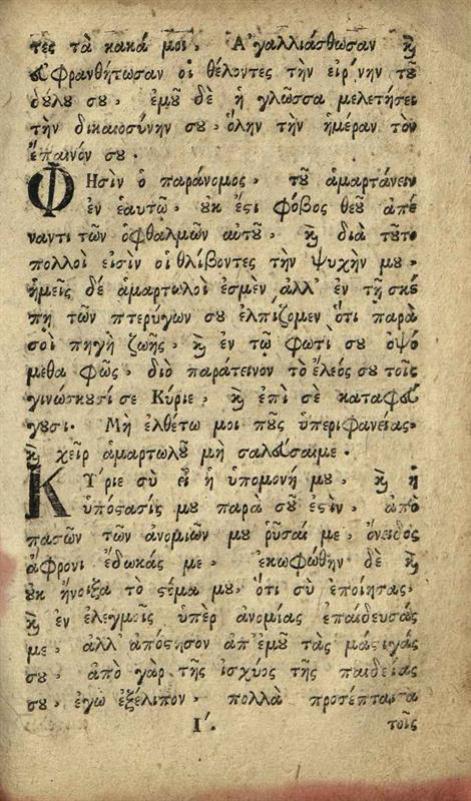 τες τὰ κακά μοι, Ἀγαλλιάσθωσαν ϗ
εὐφρανθήτωσαν οἱ θέλοντες τὴν εἰρήνην τȣ͂
δȣ́λȣ σȣ, ἐμȣ͂ δὲ ἡ γλῶσσα μελετήσει
τὴν δικαιοσύνην σȣ, ὅλην τὴν ἡμέραν τὸν
ἔπαινόν σȣ.
ΦΗσὶν ὁ παράνομος, τȣ͂ ἁμαρτάνειν
ἐν ἑαυτῷ, ȣκ ἔϛι φόβος θεȣ͂ ἀπέ
ναντι τῶν ὀφθαλμῶν αὐτȣ͂, ϗ διὰ τȣ͂το
πολλοὶ εἰσὶν οἱ θλίβοντες τὴν ψυχὴν μȣ,
ἡμεῖς δέ ἁμαρτωλοὶ ἐσμὲν, ἀλλ' ἐν τῇ σκέ
πῃ τῶν πτερύγων σȣ ἐλπίζομεν ὅτι παρὰ
σοὶ πηγὴ ζωῆς, ϗ ἐν τῷ φωτί σȣ ὀψό
μεθα φῶς, διὸ παράτεινον τὸ ἔλεός σȣ τοῖς
γινώσκȣσί σε Κύριε, ϗ ἐπὶ σὲ καταφεύ
γȣσι. Μὴ ἐλθέτω μοι πȣ͂ς ὑπεριφανείας,
ϗ χεῖρ ἁμαρτωλȣ͂ μὴ σαλεύσαιμε.
ΚΎριε σὺ εἶ ἡ ὑπομονή μȣ, ϗ ἡ
ὑπόϛασίς μȣ παρὰ σȣ͂ ἐϛὶν, ἀπὸ
πασῶν τῶν ἀνομιῶν μȣ ῥῦσαί με, ὄνειδος
ἄφρονι ἔδωκάς με, ἐκωφώθην δὲ ϗ
ȣκ ἤνοιξα τὸ ϛόμα μȣ, ὅτι σὺ ἐποίησας,
ϗ ἐν ἐλεγμοῖς ὑπὲρ ἀνομίας ἐπαίδευσάς
με, ἀλλ' ἀπόϛησον ἀπ' ἐμȣ͂ τὰς μάϛιγάς
σȣ, ἀπὸ γὰρ τῆς ἰσχύος τῆς παιδείας
σȣ, ἐγὼ ἐξέλιπον, πολλὰ προσέπταιτα
Ι΄. τοῖς